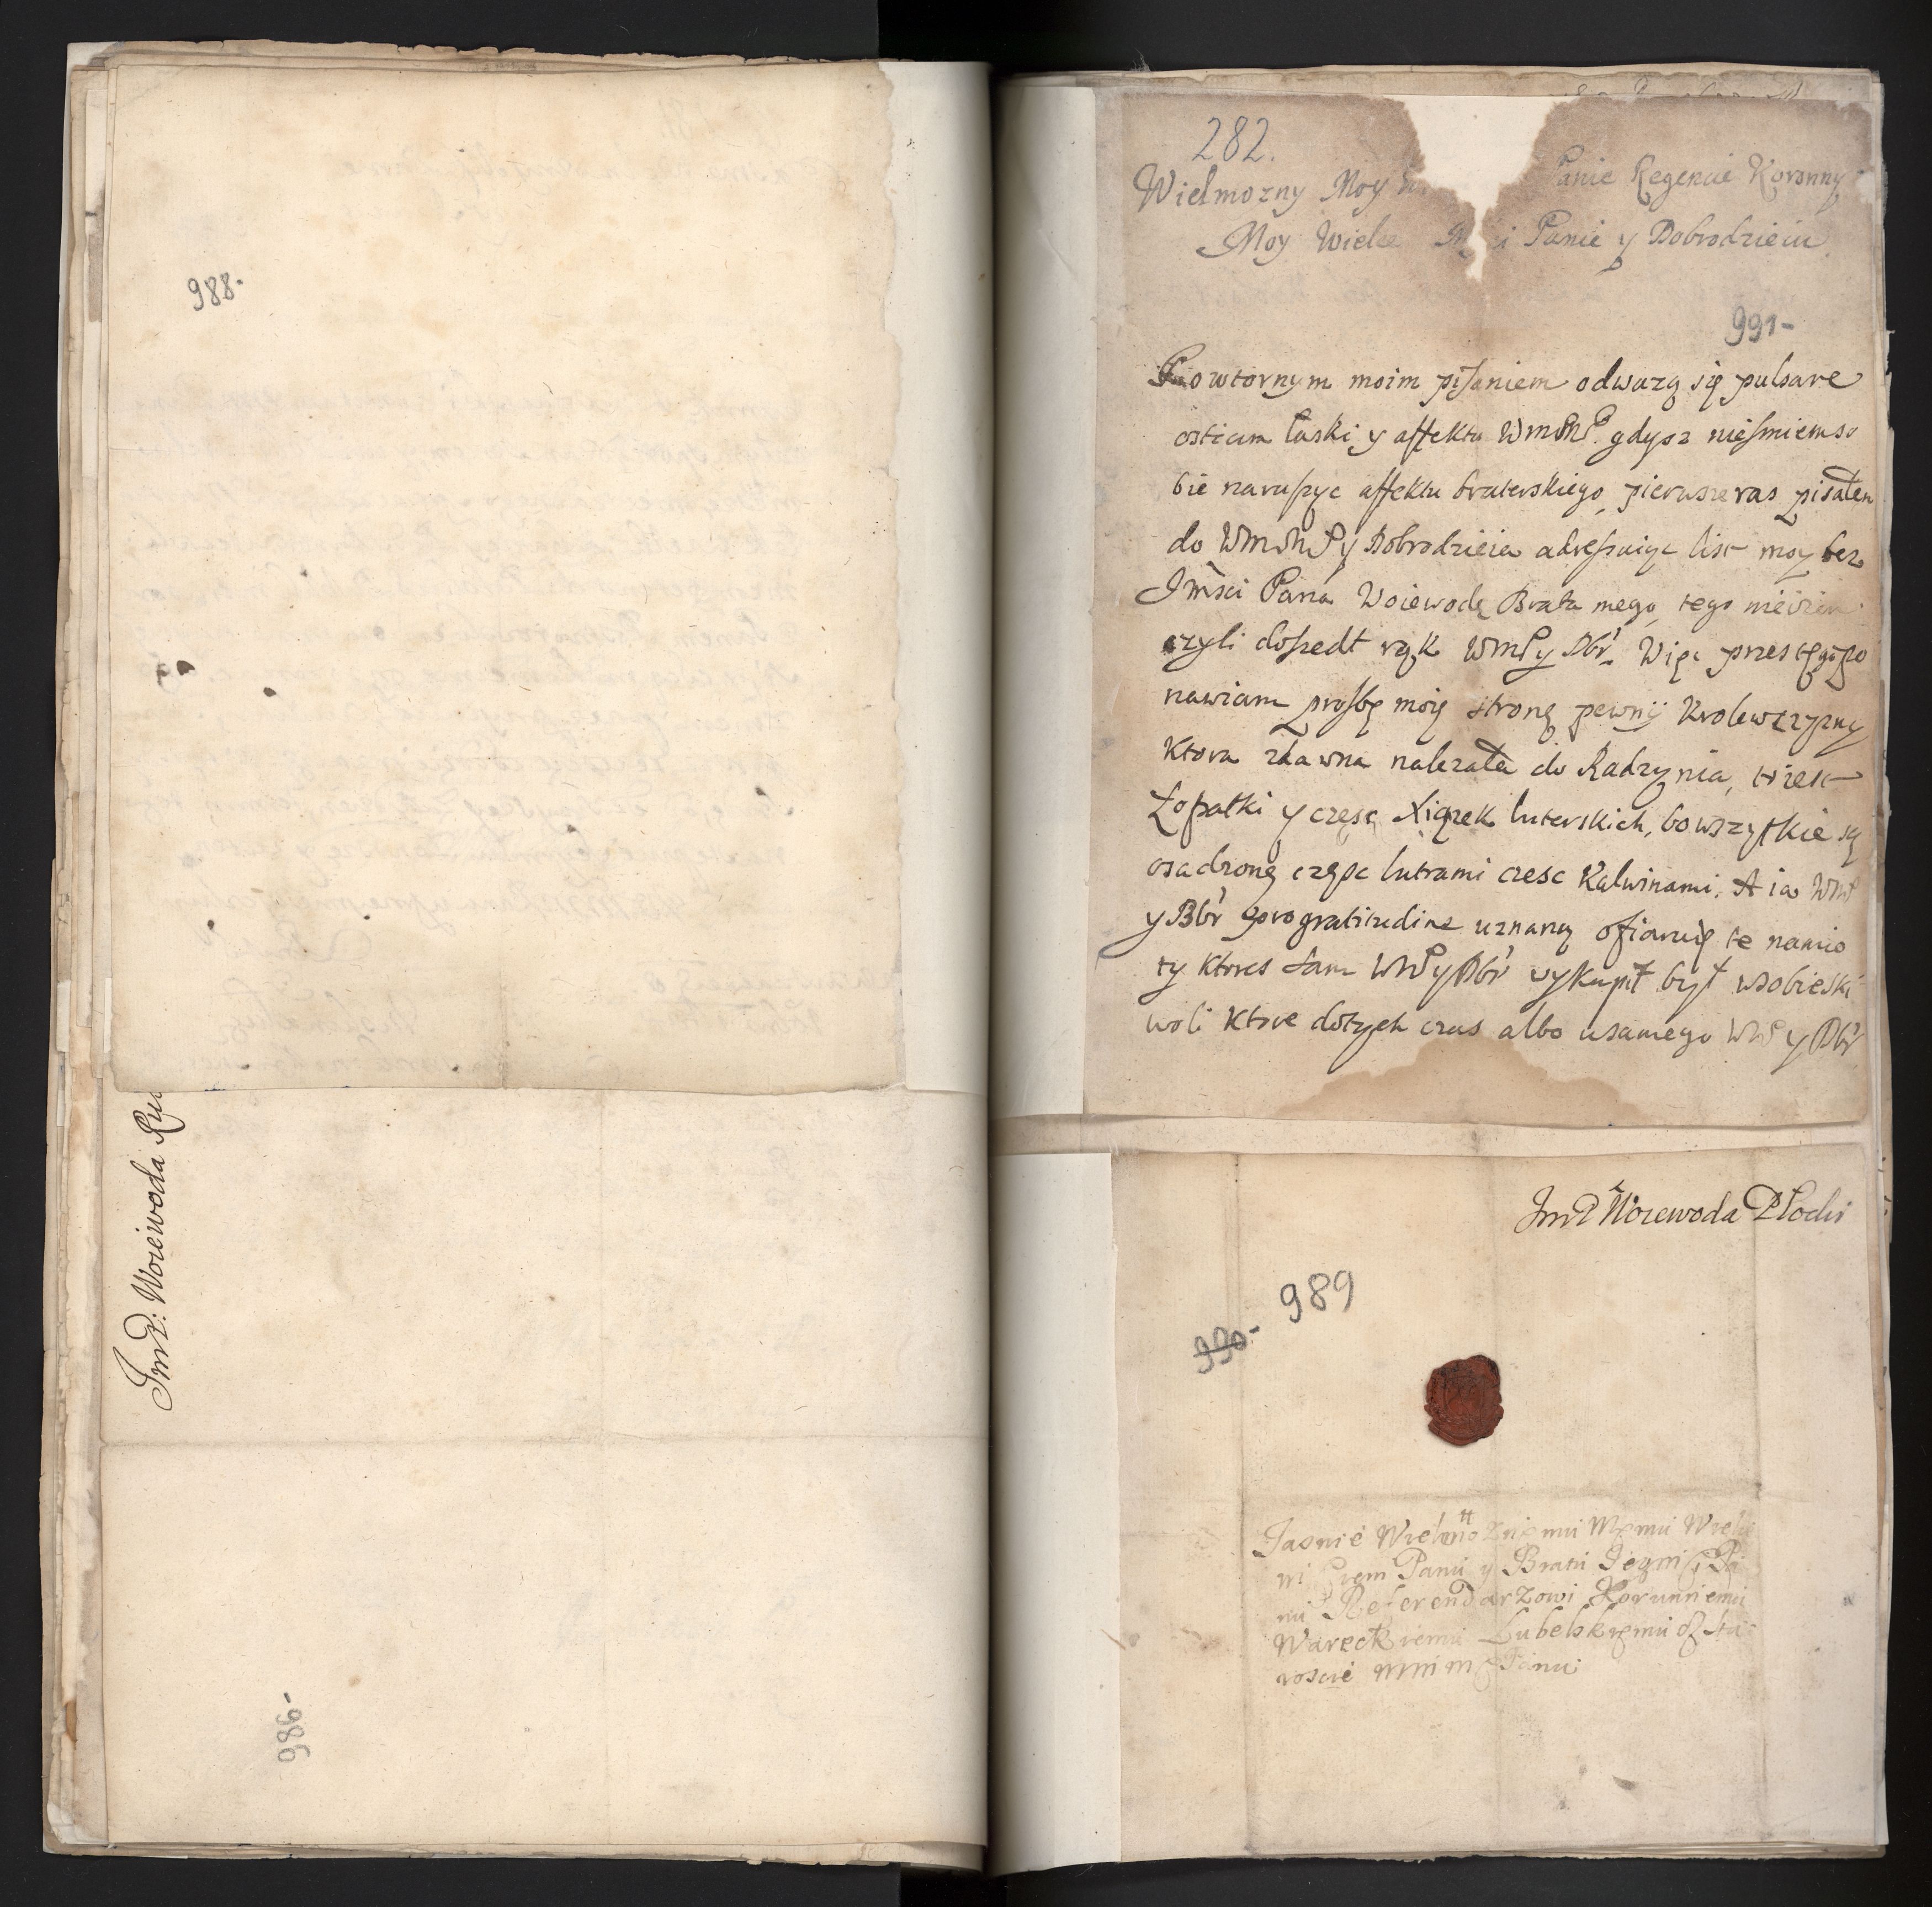 988-
JmP: Woiewoda
986-
282.
Wielmozny Moy Panie Regencie Koronny
Moy Wielce Panie y Dobrodzieiu
991-
Powtornym moim pisaniem odwazą się pulsare
ostium łaski y affektu WMMP. gdysz nieśmiem so
bie naruszyc affektu braterskiego, pierwsze ras pisałem
do WMMP y Dobrodzieia adresuiąc list moy bez
Jmsci Pana Woiewodę Brata mego, tego niewiem
czyli doszedt rąk WMP y Dbr. Więc przes tego po
nawiam prosbę moię stronę pewnij Krolewszczyzny
Ktora zdawna nalezała do Radzynia, to iest
Łopatki y częsc Xiązek luterskich, bo wszytkie są
osadzonę częsc lutrami czesc Kalwinami. A ia WMP
y Dbr pro gratitudine uznaną ofiaruię te namio
ty ktores sam WMP y Dbr wykupił był w Sobieski
woli Ktore dotych czas albo u samego WMP y Dbr
JmP Woiewoda Płocki
989
990-
Jasnie Wielmoznemu Memu Wielce
Panu y Bratu Jegmsci Pa
nu Referendarzowi Koronnemu
Wareckiemu Lubelskiemu & Sta
roscie Panu